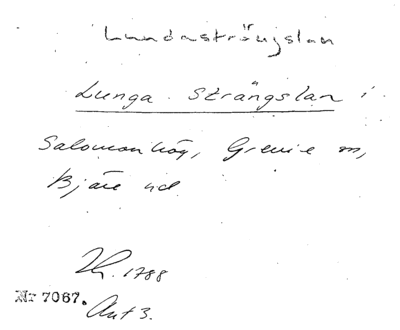 Lunnasträngslan
Lunga Strängslan i
Salomonhög, Grevie sn,
Bjäre hd
Lh. 1788
Akt 3.
Nr 7067.